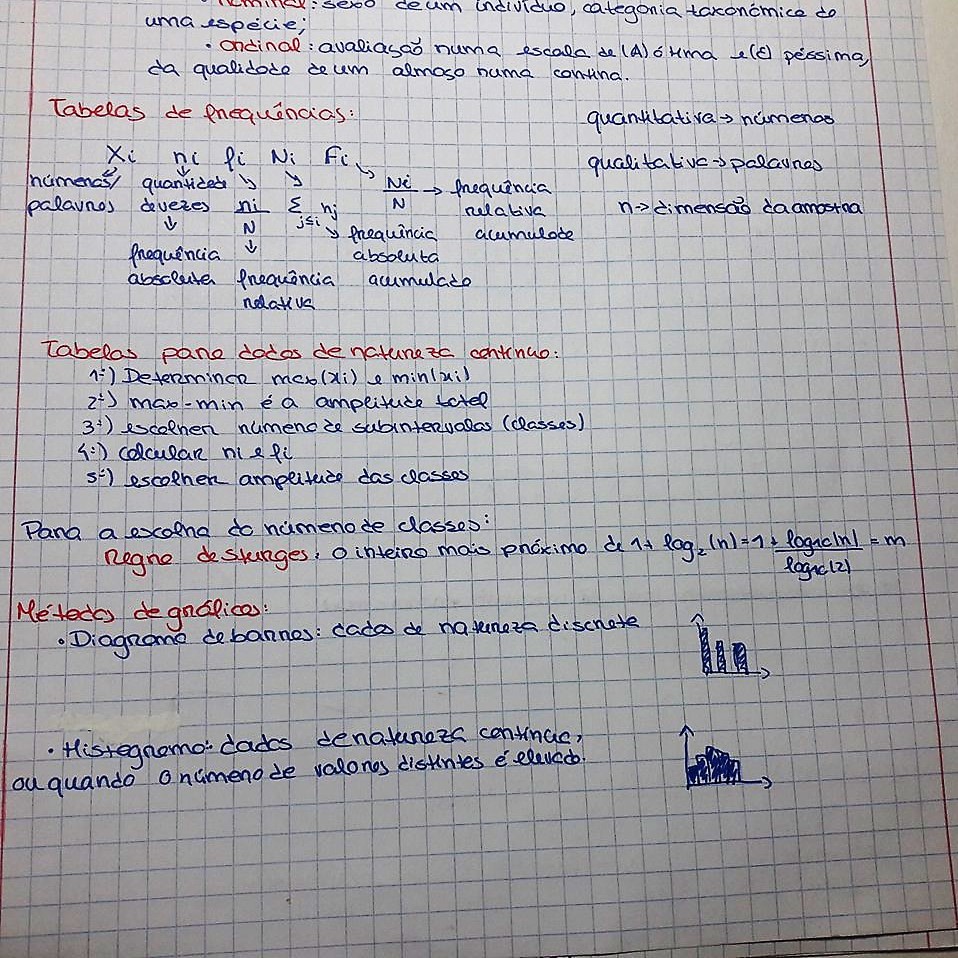 nominal: sexo de um indivíduo, categoria taxonómica de
uma espécie;
• Ordinal: avaliação numa escala de (A) ótima e (E) péssima,
da qualidade de um almoço numa cantina.
Tabelas de frequências:
quantitativa → números
qualitativa → palavras
n → dimensão da amostra
Xi ni fi Ni Fi
números/ quantidade ↘ ↘ Ni/N → frequência
palavras de vezes ni/N Σ j≤i nj relativa
↓ ↓ ↘ frequência acumulada
frequência absoluta
absoluta frequência acumulada
relativa
Tabelas para dados de natureza contínua:
1º) Determinar max(xi) e min(xi)
2º) max-min é a amplitude total
3º) escolher número de subintervalos (classes)
4º) calcular ni e fi
5º) escolher amplitude das classes
Para a escolha do número de classes:
Regra de sturges: O inteiro mais próximo de 1+ log₂(n)=1+ log10(n)/log10(2) = m
Métodos de gráficos:
• Diagrama de barras: dados de natureza discreta
• Histograma: dados de natureza contínua,
ou quando o número de valores distintos é elevado.